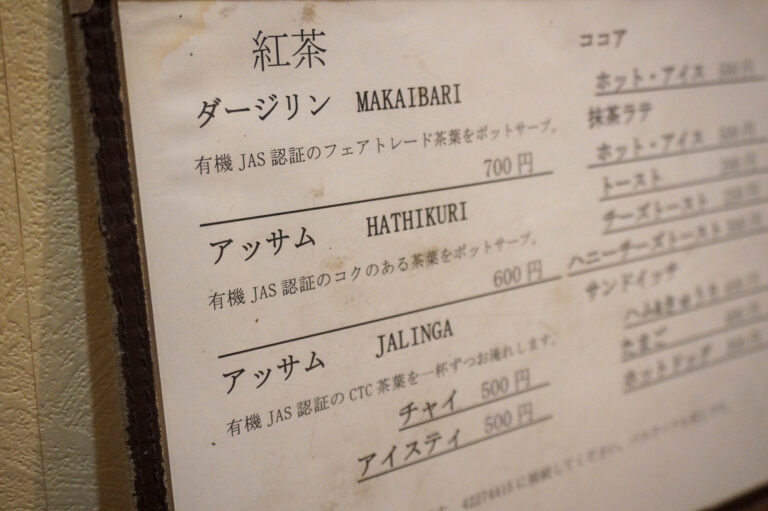 紅茶
ダージリン MAKAIBARI
有機 JAS 認証のフェアトレード茶葉をポットサーブ。
700 円
アッサム HATHIKURI
有機 JAS 認証のコクのある茶葉をポットサーブ。
600 円
アッサム JALINGA
有機 JAS 認証の CTC 茶葉を一杯ずつお淹れします。
チャイ 500 円
アイスティ 500 円
ココア
ホット・アイス
抹茶ラテ
ホット・アイス
トースト
チーズトースト
ハニーチーズトースト
サンドイッチ
たまご
ホットドッグ
に接続してください。